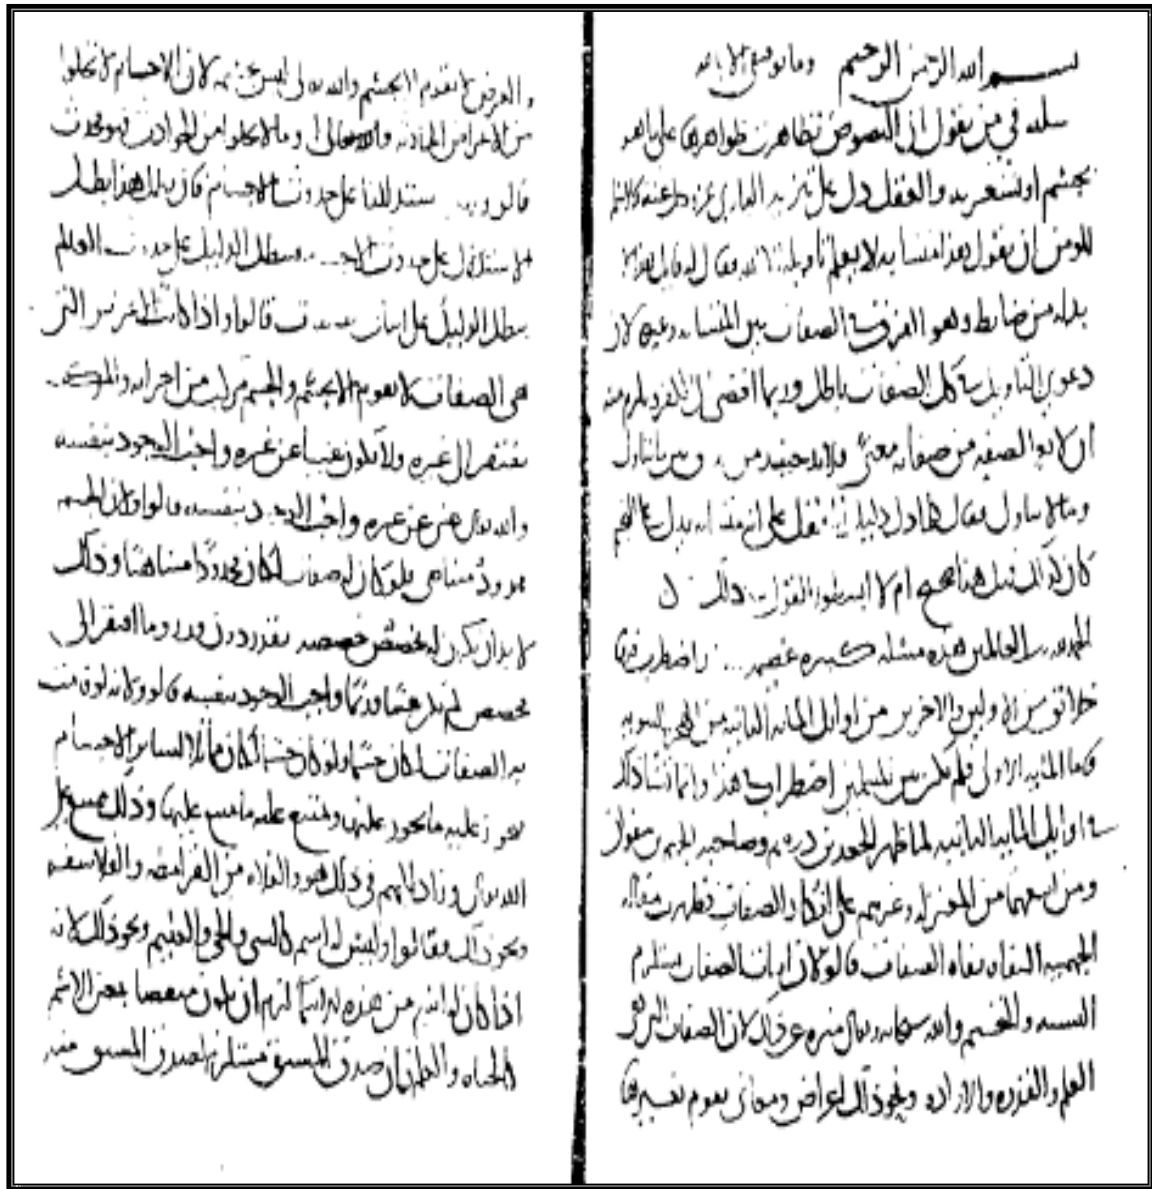 بسم الله الرحمن الرحيم وما توفيقي الا بالله
مسله في من يقول ان النصوص تظاهرت ظواهرها على ما هو
تجسيم او تشعر به والعقل دل على تنزيه الباري عز وجل عنه فالاسلم
للمومن ان يقول هذا متشابه لا يعلم تاويله الا الله فقال له قايل هذا لا
بد له من ضابط وهو الفرق في الصفات بين المتشابه وغيره لان
دعوى التاويل في كل الصفات باطل وربما افضى الى الكفر ويلزم منه
ان لا يعلم لصفه من صفاته معنى فلا بد حينيد من وبين ما يتاول
وما لا يتاول فقال كلما دل دليل العقل على انه يدل على التجسيم
كان ذلك متشابها فهل هذا صحيح ام لا ابسطوا القول في ذلك
الحمد لله رب العالمين هذه مسئله كبيره عظيمه اضطرب فيها
خلايق من الاولين والاخرين من اوايل المايه الثانيه من الهجره النبويه
فاما المايه الاولى فلم يكن بين المسلمين اضطراب في هذا وانما نشا ذلك
في اوايل المايه الثانيه لما ظهر الجعد بن درهم وصاحبه الجهم بن صفوان
ومن اتبعهما من المعتزله وغيرهم على انكار الصفات فظهرت مقاله
الجهميه النفاه نفاه الصفات قالوا لان اثبات الصفات يستلزم
التشبيه والتجسيم والله سبحانه وتعالى منزه عن ذلك لان الصفات التي هي
العلم والقدره والاراده ونحو ذلك اعراض ومعاني تقوم بغيرها
والعرض لا يقوم الا بجسم والله تعالى ليس بجسم لان الاجسام لا تخلوا
من الاعراض الحادثه وما لا يخلوا من الحوادث فهو محدث
قالوا وبهذا استدللنا على حدوث الاجسام فان بطل هذا بطل
الاستدلال على حدوث الاجسام وبطل الدليل على حدوث العالم
بطل الدليل على اثبات قالوا واذا كانت الاعراض التي
هي الصفات لا تقوم الا بجسم والجسم مركب من اجزايه والمركب
مفتقر الى غيره ولا يكون غنيا عن غيره واجب الوجود بنفسه
والله تعالى غني عن غيره واجب الوجود بنفسه قالوا ولان الجسم
محدود متناهي فلو كان له صفات لكان محدودا متناهيا وذلك
لا بد ان يكون له مخصص خصصه بقدر دون قدر وما افتقر الى
مخصص لم يكن غنيا قديما واجب الوجود بنفسه قالوا ولانه لو قامت
به الصفات لكان جسما ولو كان جسما لكان مماثلا لساير الاجسام
يجوز عليه ما يجوز عليها ويمتنع عليه ما يمتنع عليها وذلك ممتنع على
الله تعالى وزاد الجهم في ذلك هو والغلاه من القرامطه والفلاسفه
ونحو ذلك فقالوا وليس له اسم كالشي والحي والعليم ونحو ذلك لانه
اذا كان له اسم من هذه الاسما لزم ان يكون متصفا بمعنى الاسم
كالحياه والعلم فان صدق المشتق مستلزم لصدق المشتق منه